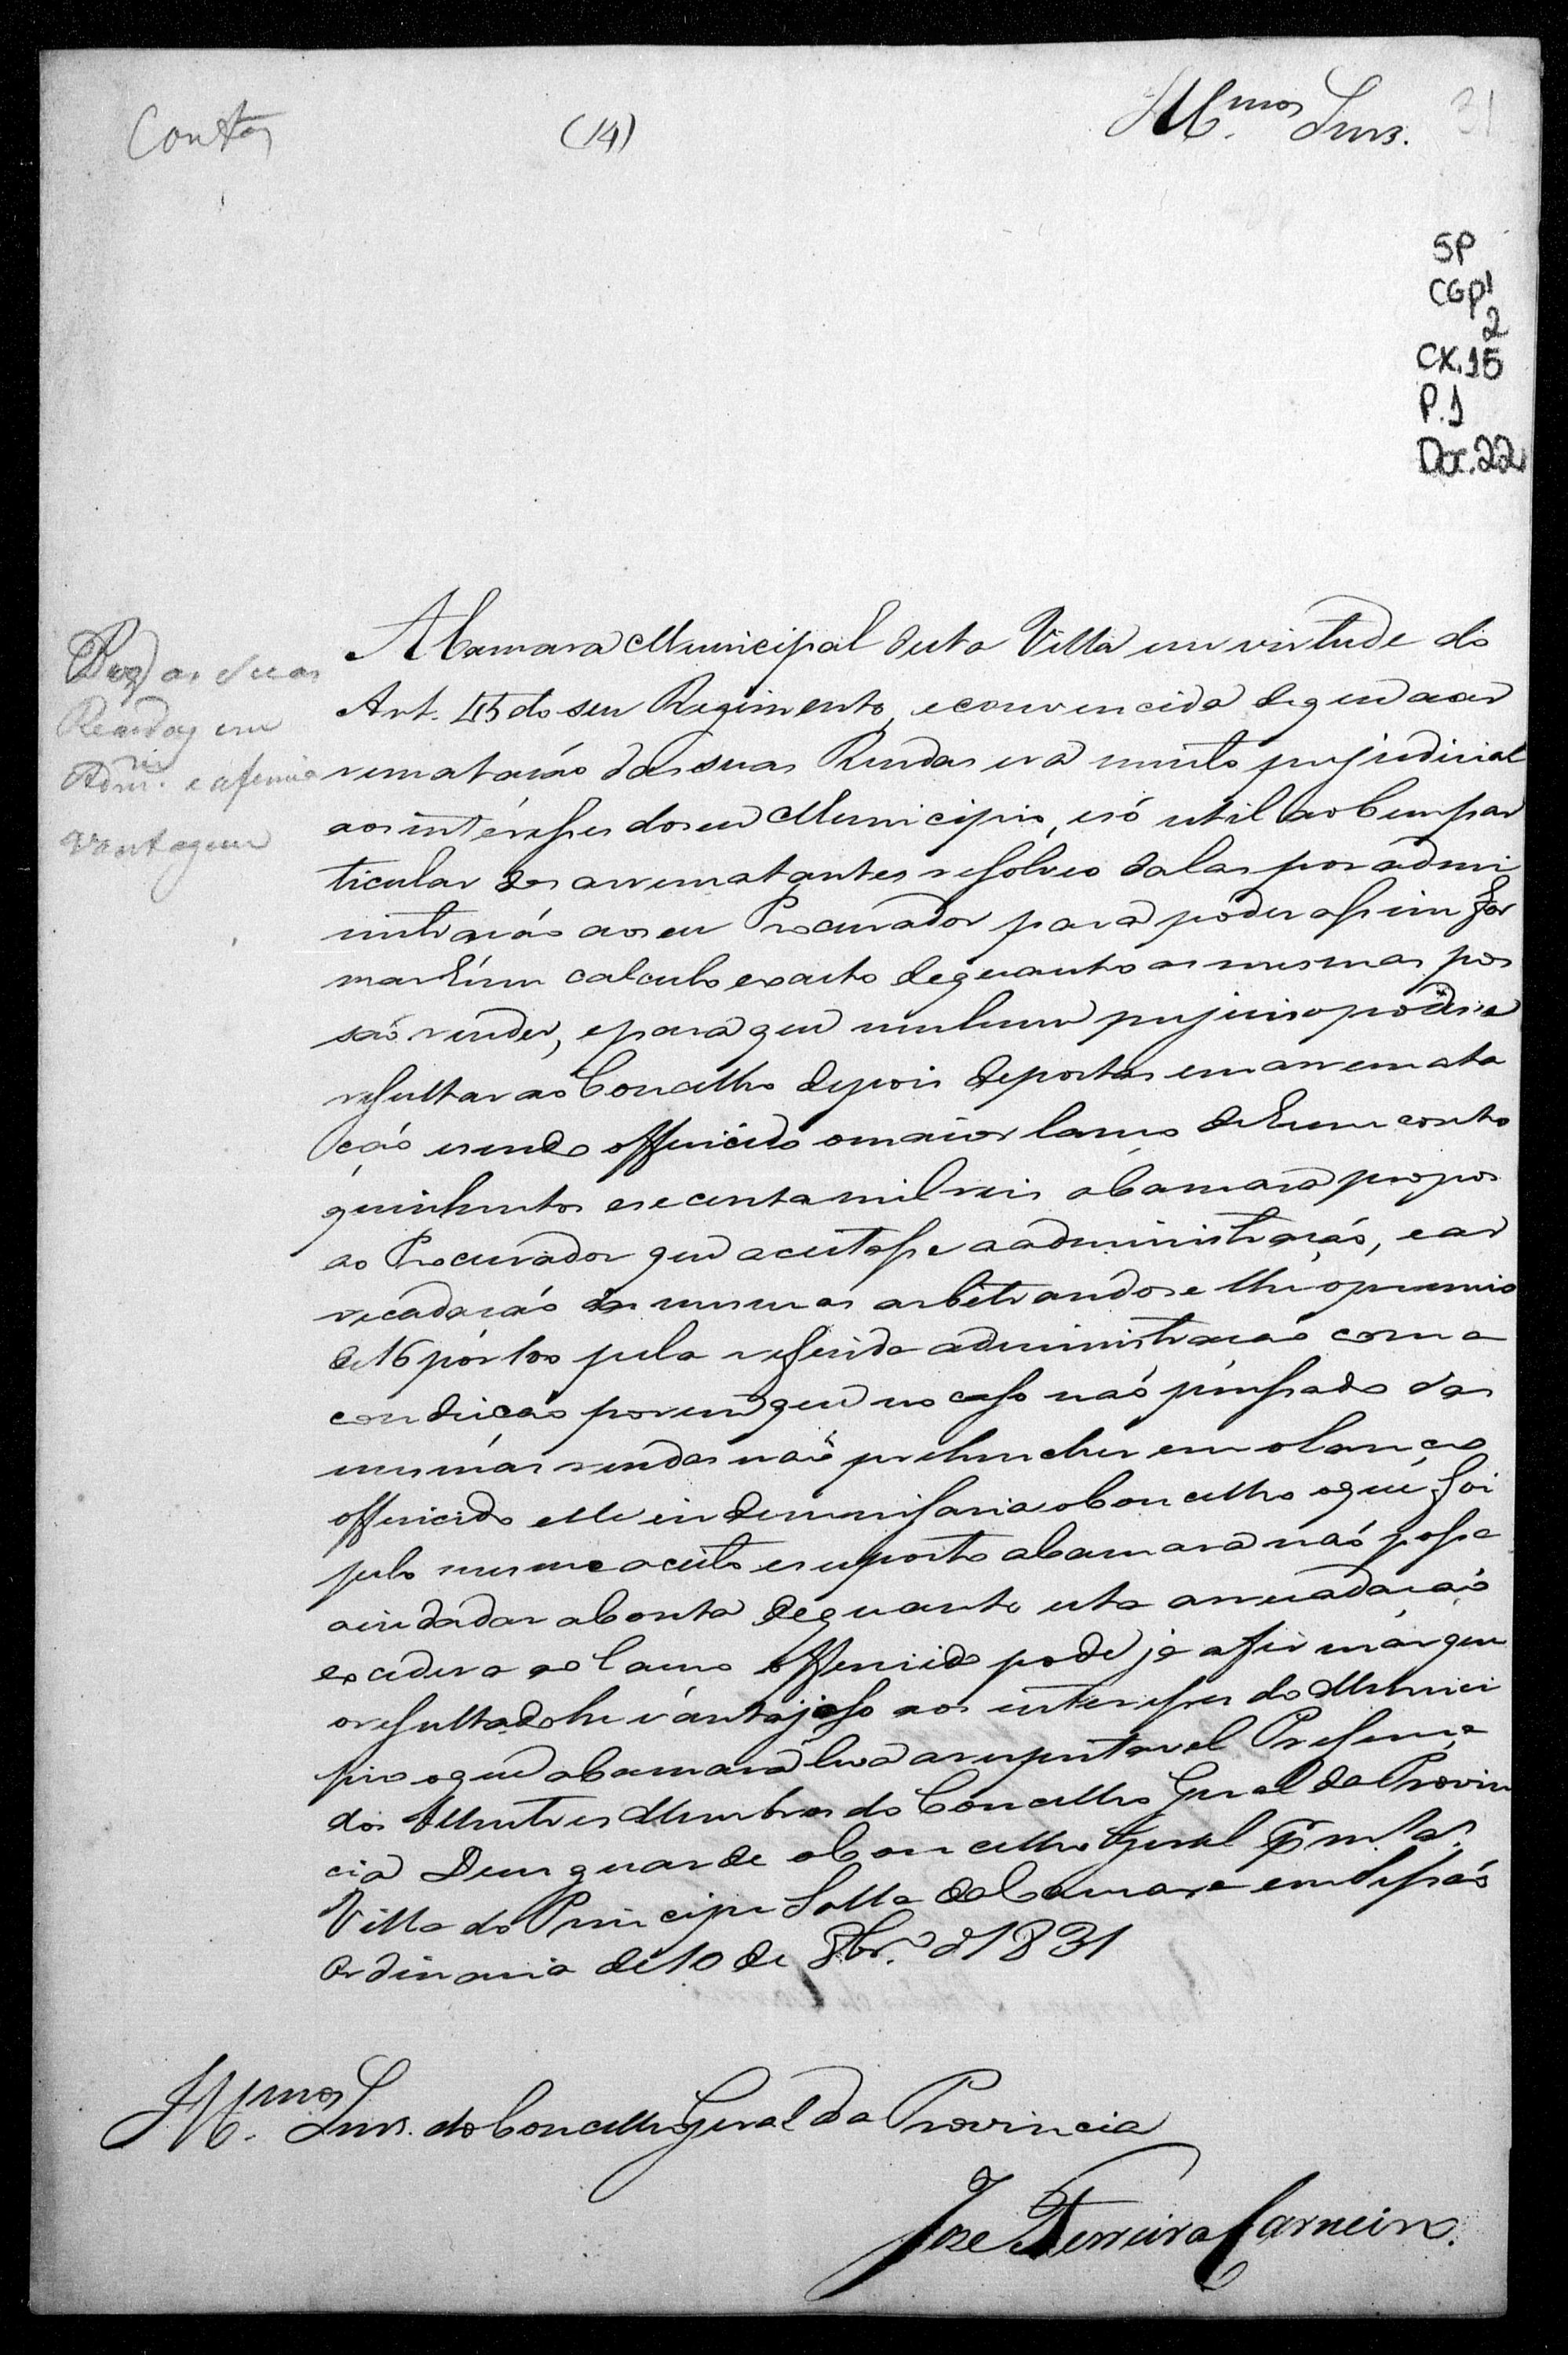 Contas
(14)
Ill.mos Snrs.
31
SP
CGP1
2
CX.15
P.1
Doc.22
as suas
Rendas em
Adm. e afirma
Vantagem
A Camara Municipal desta Villa em virtude do
Art. 45 do seu Regimento, e convencida de que a ar
rematação das suas Rendas era muito prejudicial
aos intéresses do seu Municipio, e só util ao bem par
ticular dos arrematantes resolveo dalas por admi
nistração ao seu Procurador para póder assim for
mar hum calculo exacto de quanto as mesmas pos
são render, e para que nenhum prejuiso podesse
resultar ao Concelho depois de postas em arremata
ção e sendo offericido o maior lanço de hum conto
quinhentos e secenta mil reis a Camara propos
ao Procurador que aceitasse a administração, e ar
recadação das mesmas arbitrandose lhe o premio
de 16 por 100 pela referida administração com a
condição porem que no caso não pensado das
mesmas rendas não prehencherem o lanço
offericido elle indemnisaria o Concelho o que foi
pelo mesmo aceito e suposto a Camara não possa
ainda dar a Conta de quanto esta arrecadação
excedera ao lanço offericido pode já afirmár que
o resultado he vantajoso aos interesses do Munici
pio o que a Camara leva a respeitavel Presença
dos Illustres Membros do Concelho Geral da Provin
cia Deus guarde o Concelho Geral p. m.s a.s
Villa do Principe Salla da Camara em Sessão
Ordinaria de 10 de 8br.o d 1831
Ill.mos Snrs. do Concelho Geral da Provincia
Jose Ferreira Carneiro.